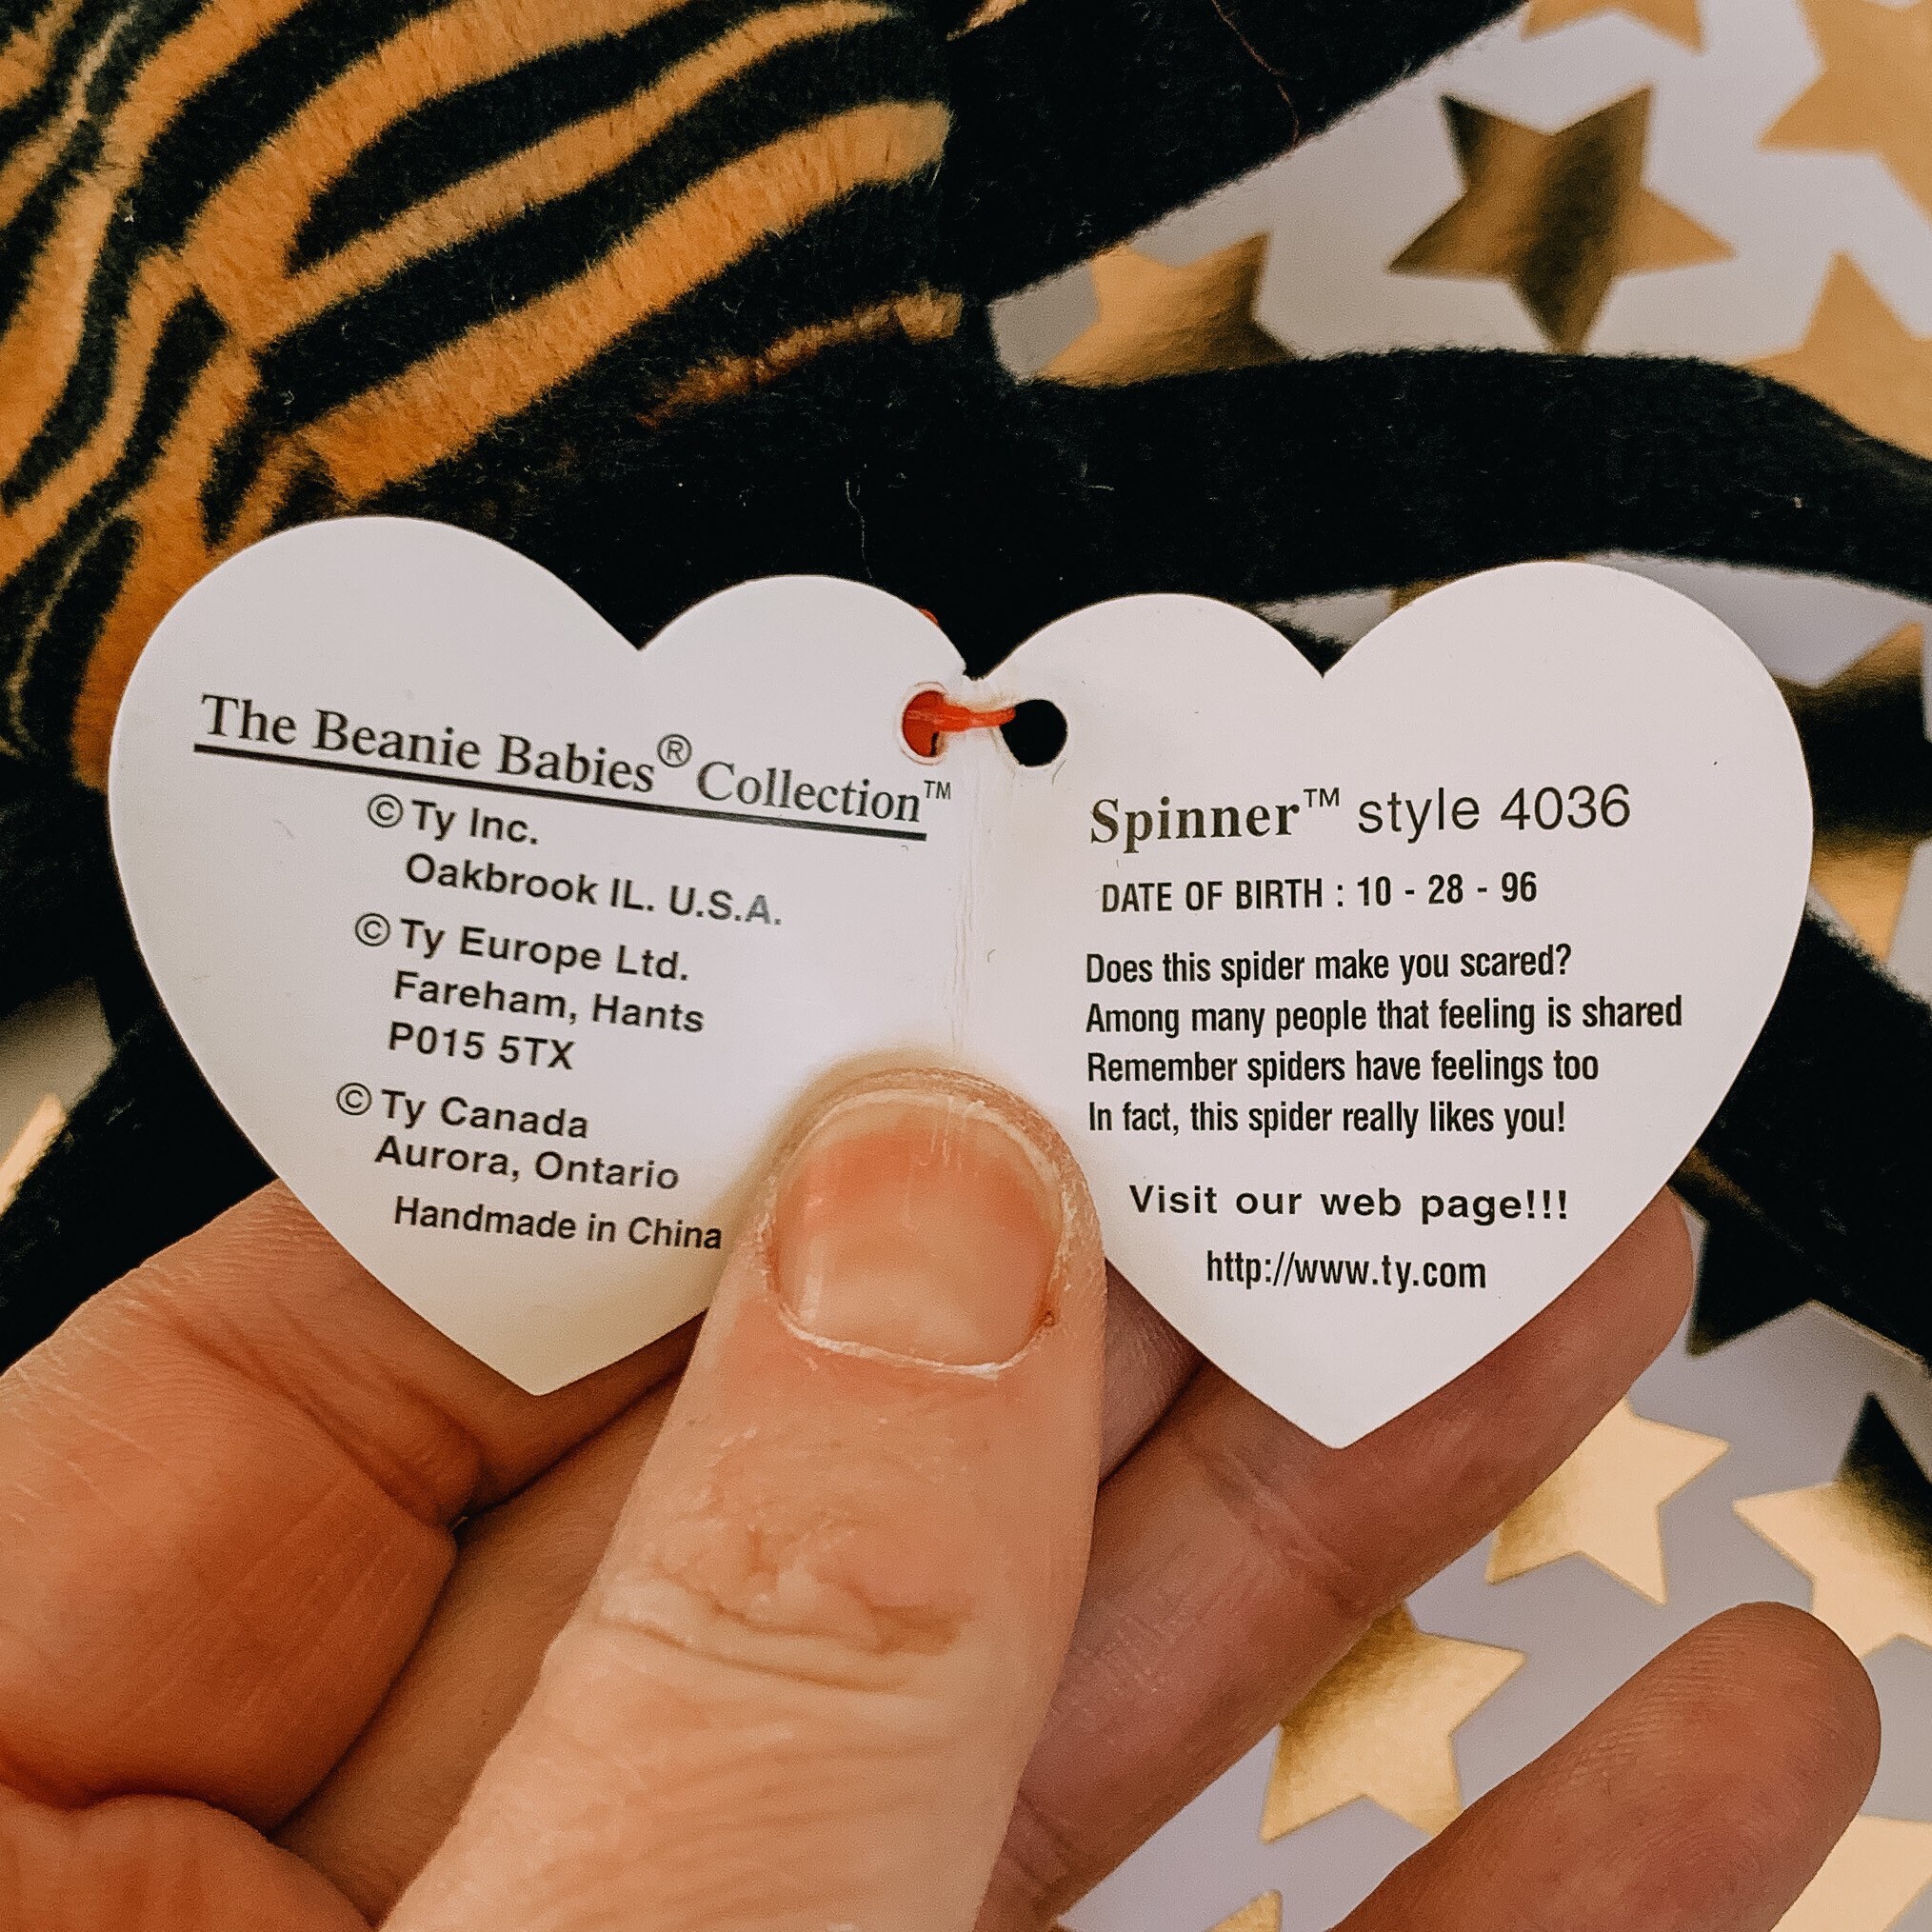 The Beanie Babies® Collection™
© Ty Inc.
Oakbrook IL. U.S.A.
© Ty Europe Ltd.
Fareham, Hants
P015 5TX
© Ty Canada
Aurora, Ontario
Handmade in China
Spinner™ style 4036
DATE OF BIRTH : 10 - 28 - 96
Does this spider make you scared?
Among many people that feeling is shared
Remember spiders have feelings too
In fact, this spider really likes you!
Visit our web page!!!
http://www.ty.com